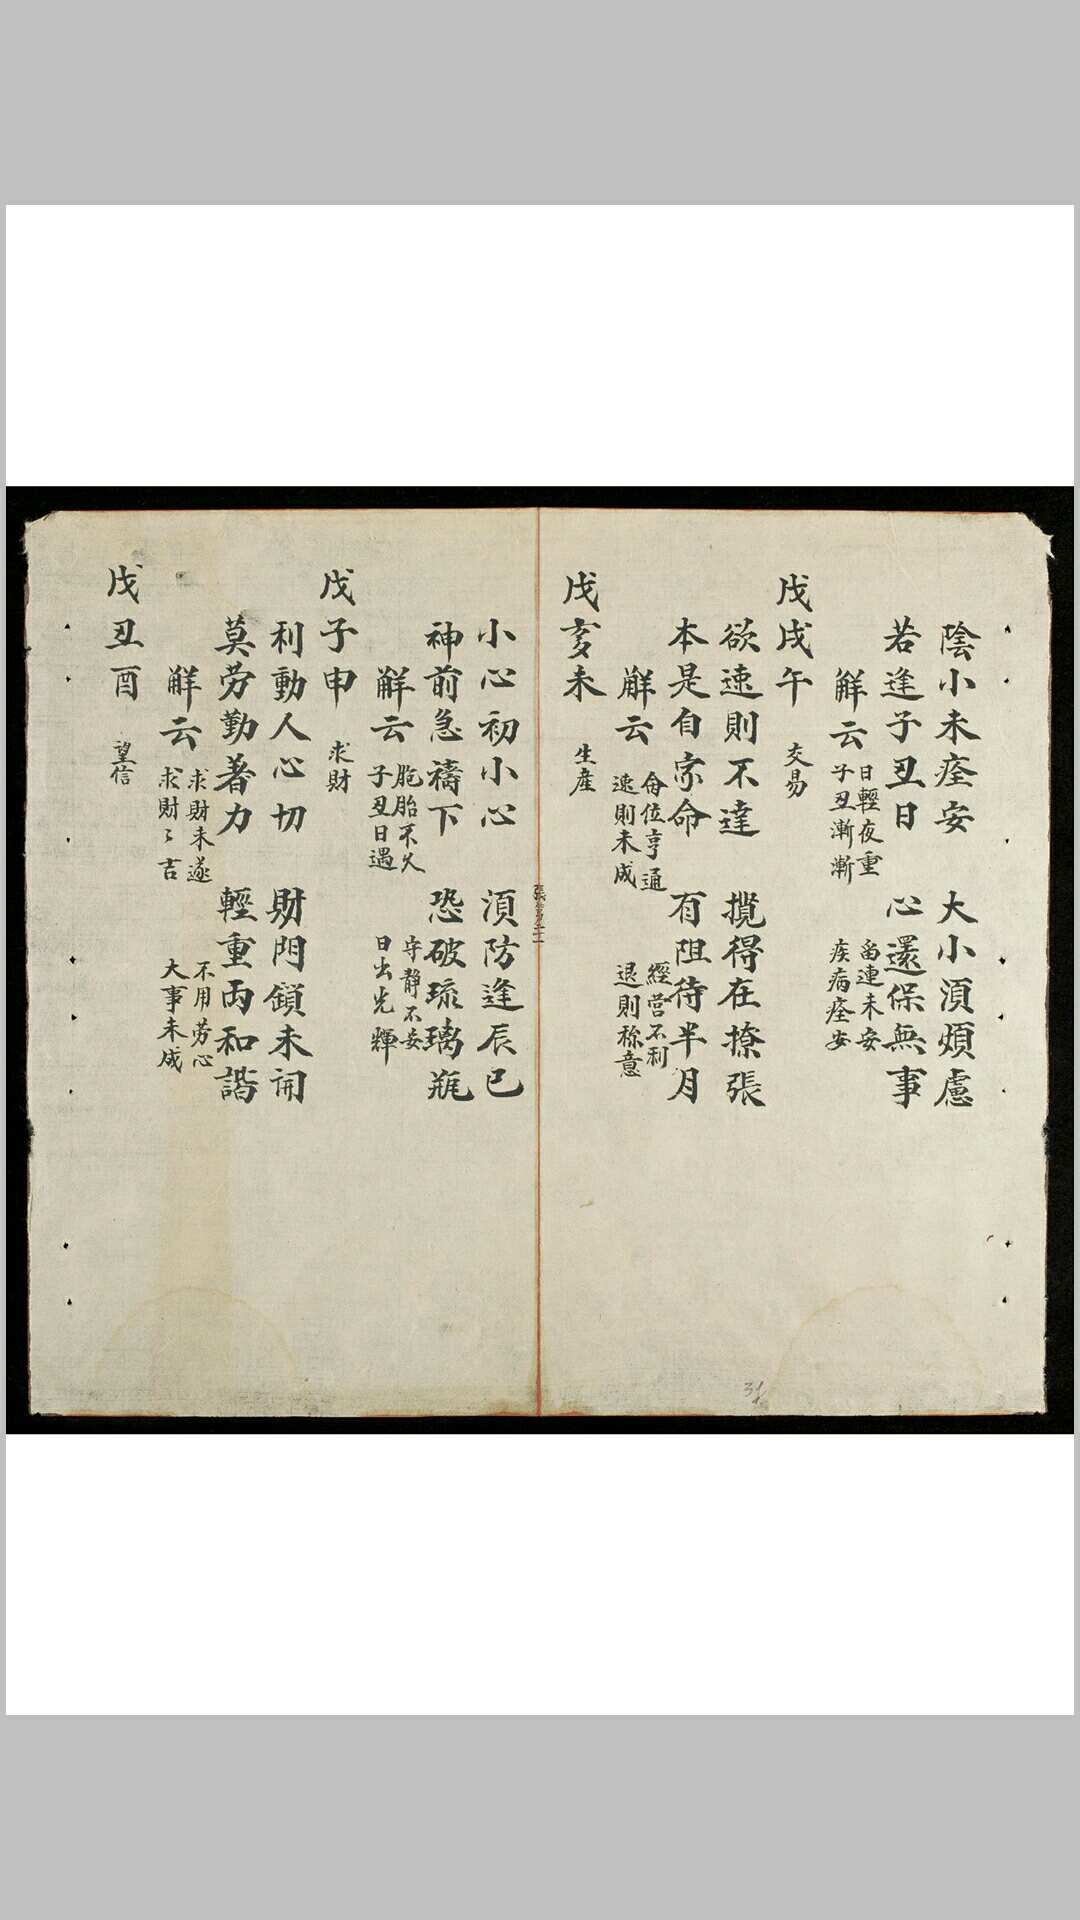 陰小未痊安　大小須煩慮
若逢子丑日　心還保無事
解云　日輕夜重　畱連未安
子丑漸漸　疾病痊安
戊戌午　交易
欲速則不達　攪得在撩張
本是自家命　有阻待半月
解云　命位亨通　經营不利
速則未成　退則称意
戊亥未　生産
小心初小心　須防逢辰巳
神前急禱下　恐破琉璃瓶
解云　胞胎不久　守静不妄
子丑日遇　日出光輝
戊子申　求財
利動人心切　財門鎖未開
莫劳勤著力　輕重両和諧
解云　求財未遂　不用劳心
求財〻吉　大事未成
戊丑酉　望信
31